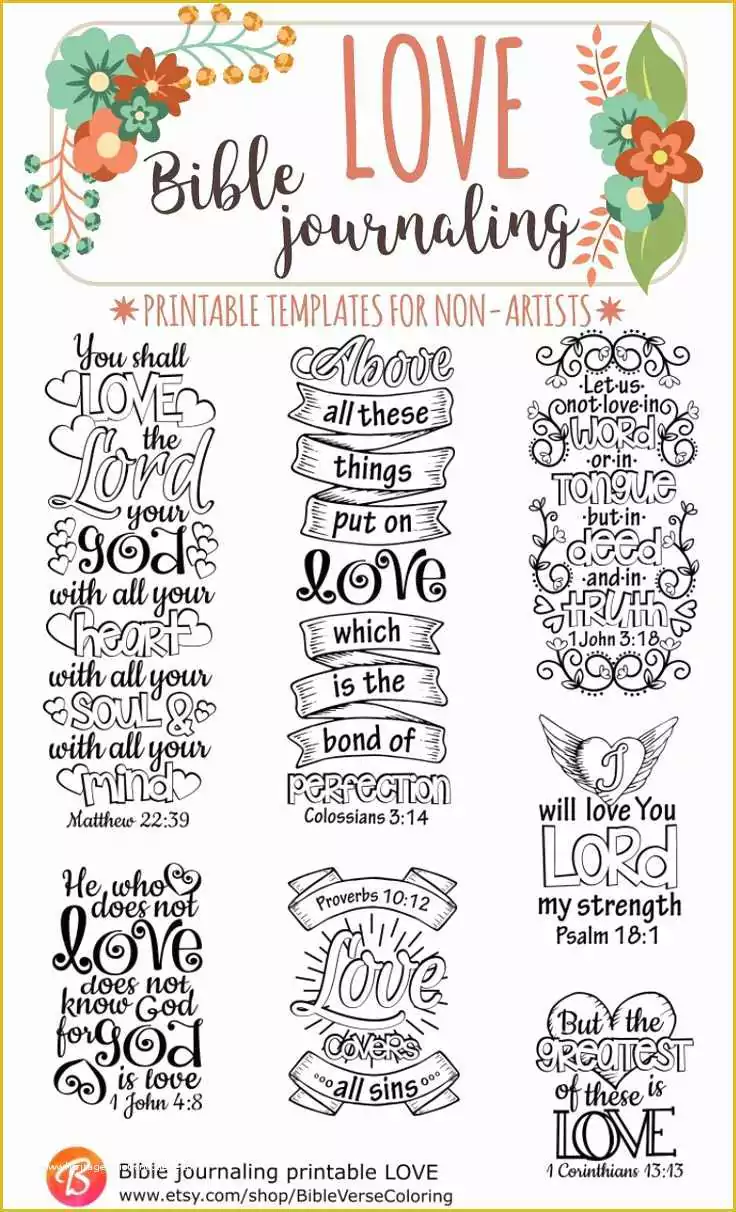 LOVE
Bible
journaling
PRINTABLE TEMPLATES FOR NON-ARTISTS
You shall
LOVE
the
Lord
your
God
with all your
heart
with all your
SOUL &
with all your
mind
Matthew 22:39
Above
all these
things
put on
love
which
is the
bond of
PERFECTION
Colossians 3:14
Let us
not·love·in
WORD
·or·in·
TONGUE
·but·in·
deed
·and·in·
TRUTH
1 John 3:18
I
will love You
LORD
my strength
Psalm 18:1
He who
does not
love
does not
know God
for God
is love
1 John 4:8
Proverbs 10:12
Love
COVERS
all sins
But the
GREATEST
of these is
LOVE
1 Corinthians 13:13
B
Bible journaling printable LOVE
www.etsy.com/shop/BibleVerseColoring